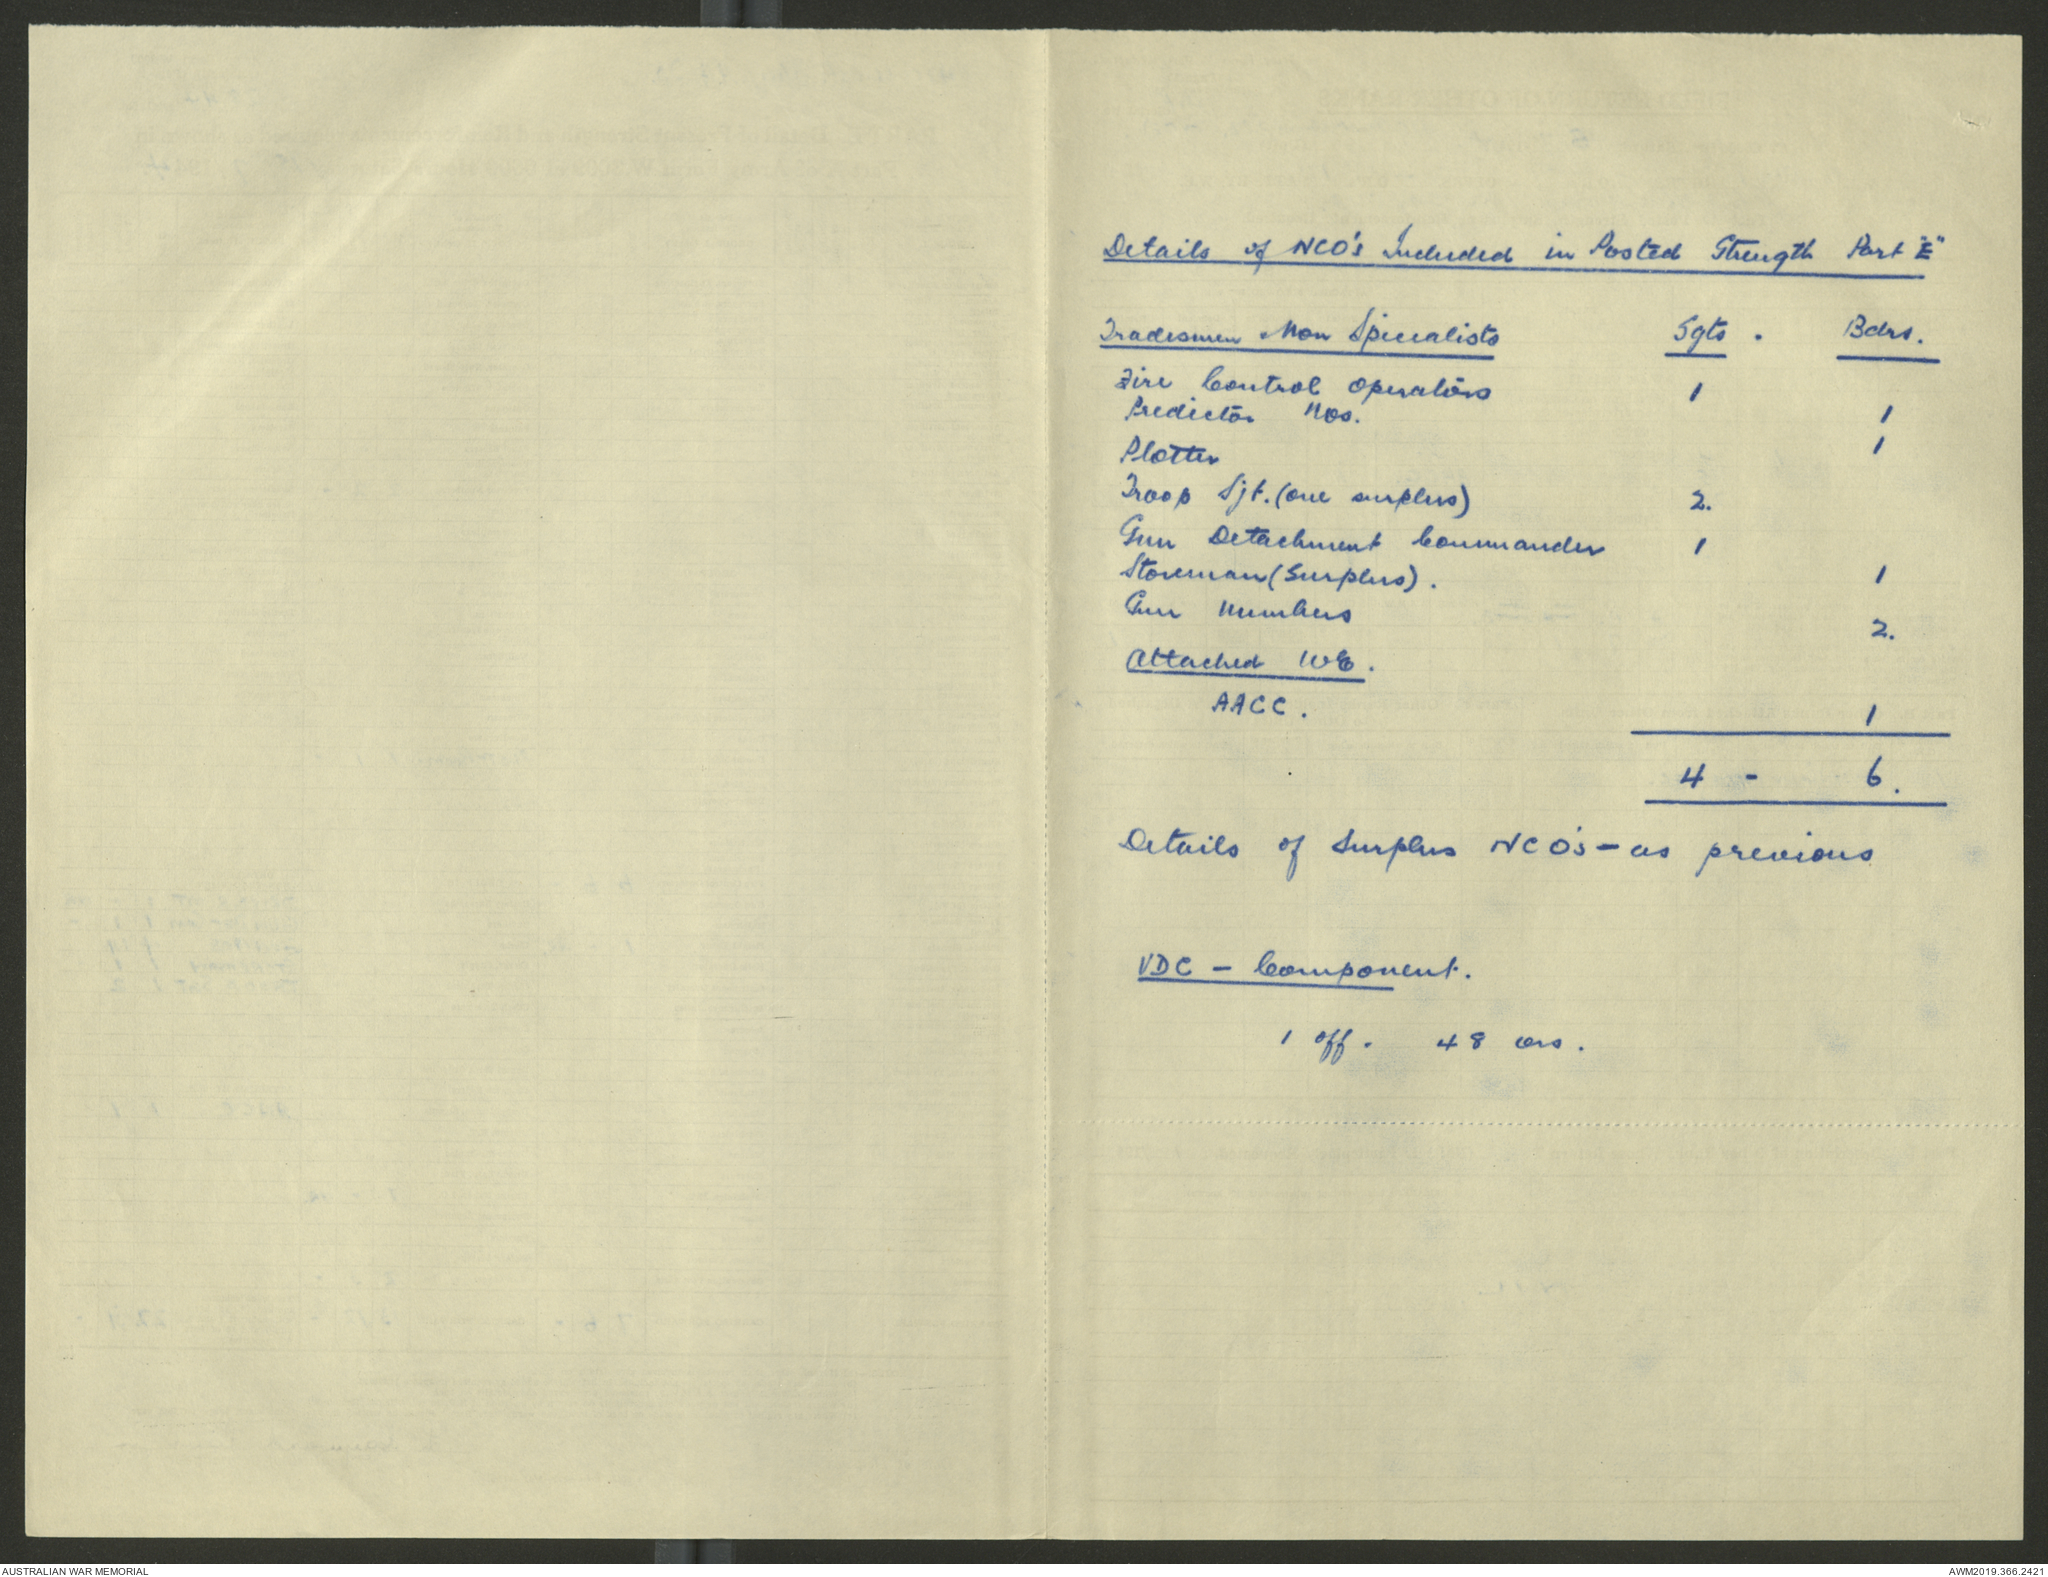 Details of NCO's Included in Posted Strength Part "E"
Tradesmen Non Specialists Sgts. Bdrs.
Fire Control Operators 1
Predictor Nos. 1
Plotter 1
Troop Sjt. (one surplus) 2.
Gun Detachment Commander 1
Storeman (Surplus). 1
Gun Numbers 2.
Attached WE.
AACC. 1
4 - 6.
Details of Surplus NCO's - as previous
VDC - Component.
1 off. 48 ors.
AUSTRALIAN WAR MEMORIAL
AWM2019.366.2421